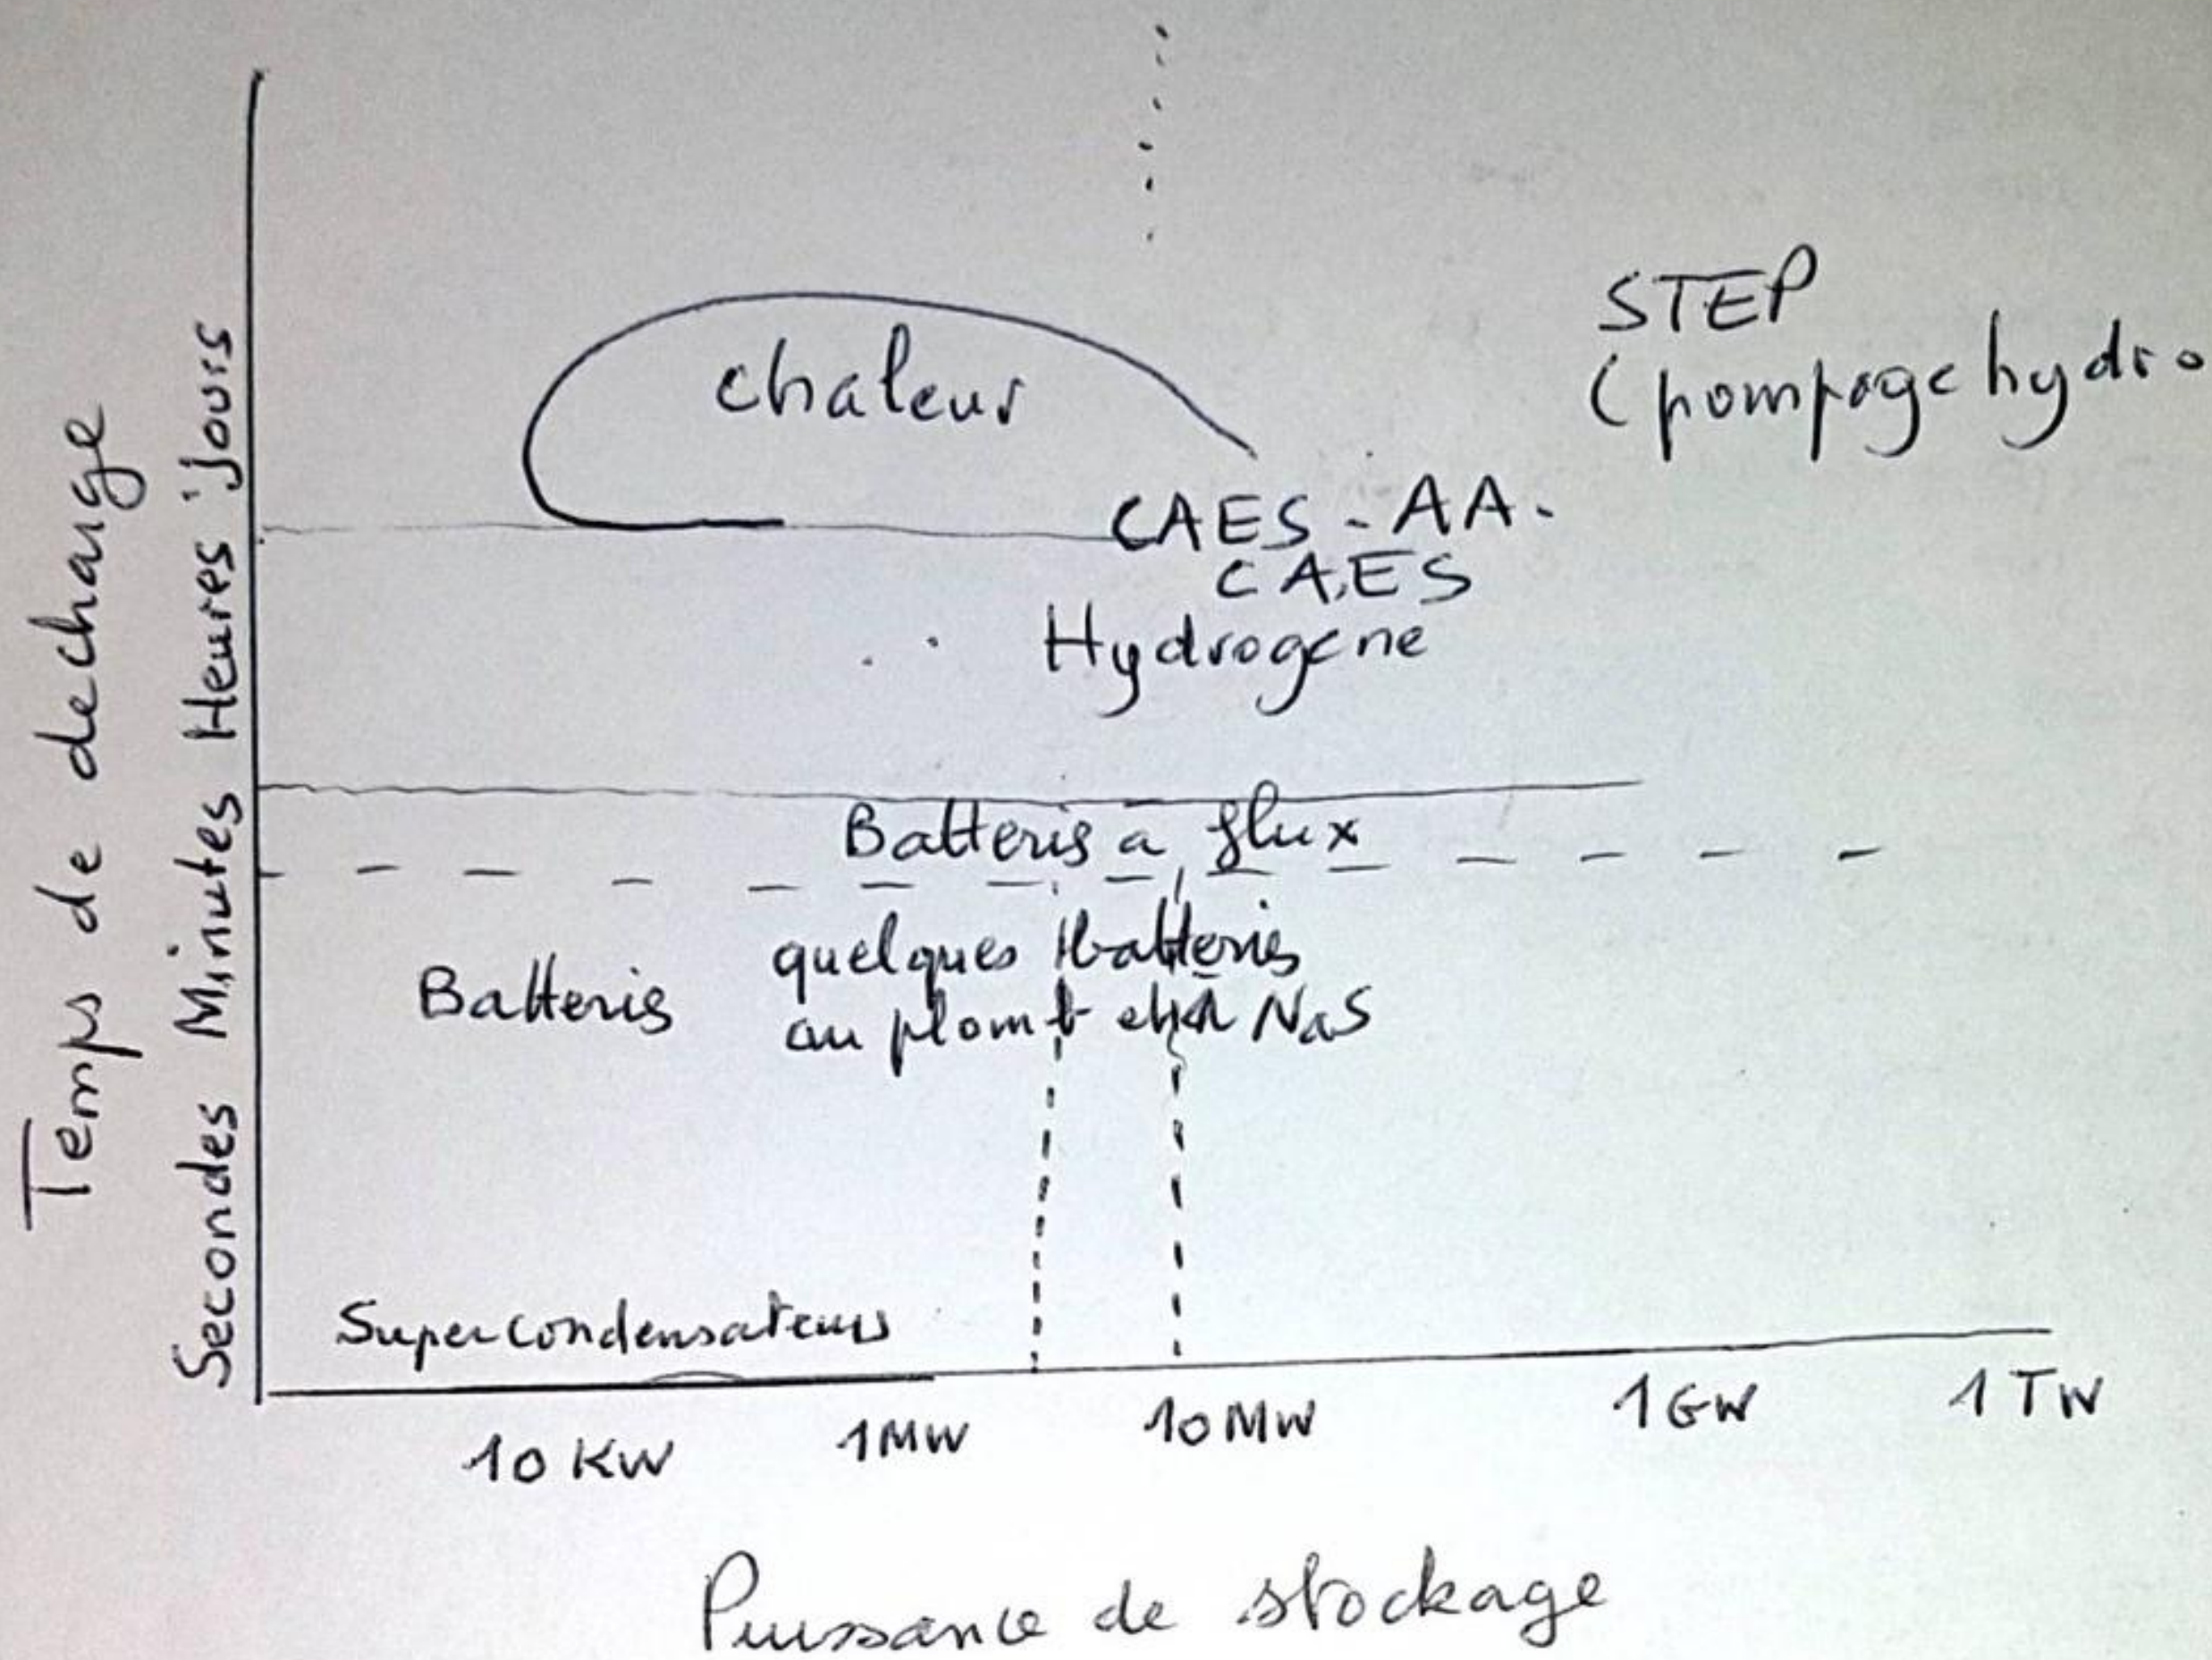 Temps de decharge
Secondes Minutes Heures jours
chaleur
STEP
(pompage hydro
CAES - AA.
CAES
Hydrogene
Batteris a flux
quelques batteris
au plomb et à NaS
Batteris
Supercondensateurs
10 KW
1MW
10 MW
1GW
1 TW
Puissance de stockage